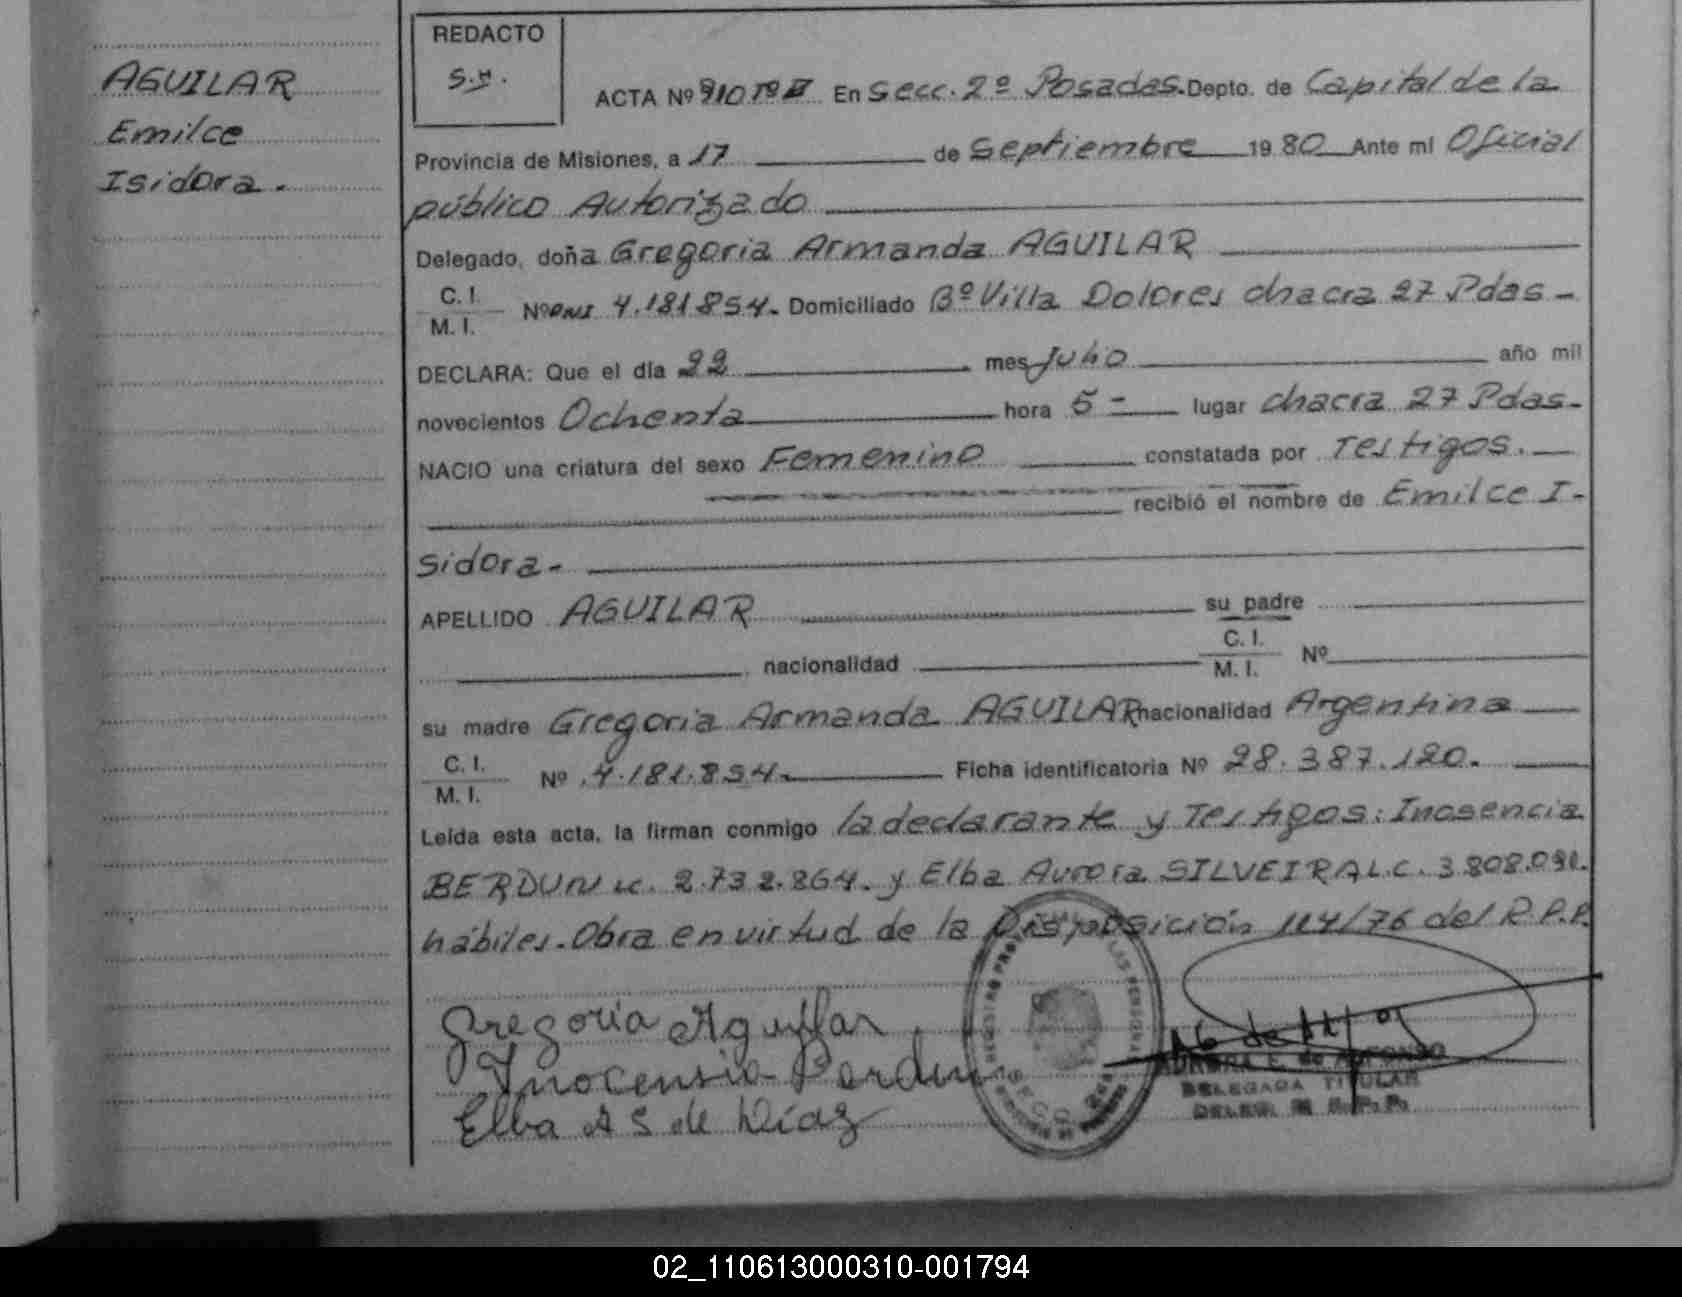 AGUILAR
Emilce
Isidora.
REDACTO
S.H.
ACTA Nº 910 Tº II En Secc. 2º Posadas. Depto. de Capital de la
Provincia de Misiones, a 17 de Septiembre 19 80 Ante mí Oficial
público Autorizado
Delegado, doña Gregoria Armanda AGUILAR
C. I.
M. I.
Nº DNI 4.181.854. Domiciliado Bº Villa Dolores chacra 27 Pdas-
DECLARA: Que el día 22 mes Julio año mil
novecientos Ochenta hora 5- lugar chacra 27 Pdas-
NACIO una criatura del sexo Femenino constatada por Testigos.
recibió el nombre de Emilce I-
sidora-
APELLIDO AGUILAR su padre
nacionalidad C. I.
M. I. Nº
su madre Gregoria Armanda AGUILAR nacionalidad Argentina
C. I.
M. I.
Nº 4.181.854- Ficha identificatoria Nº 28.387.120.
Leída esta acta, la firman conmigo la declarante y Testigos: Inosencia
BERDUN LC. 2.732.864. y Elba Aurora SILVEIRA L.C. 3.808.091.
hábiles. Obra en virtud de la Disposición 114/76 del R.P.P.
Gregoria Aguillar
Inocensia Berdun
Elba A S de Diaz
DELEGADA TITULAR
02_110613000310-001794